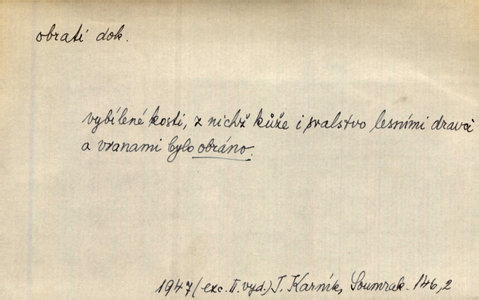 obrati dok.
vybílené kosti, z nichž kůže i svalstvo lesními dravci
a vranami bylo obráno.
1947 (exc. II. vyd.) J. Karník, Soumrak 146,2